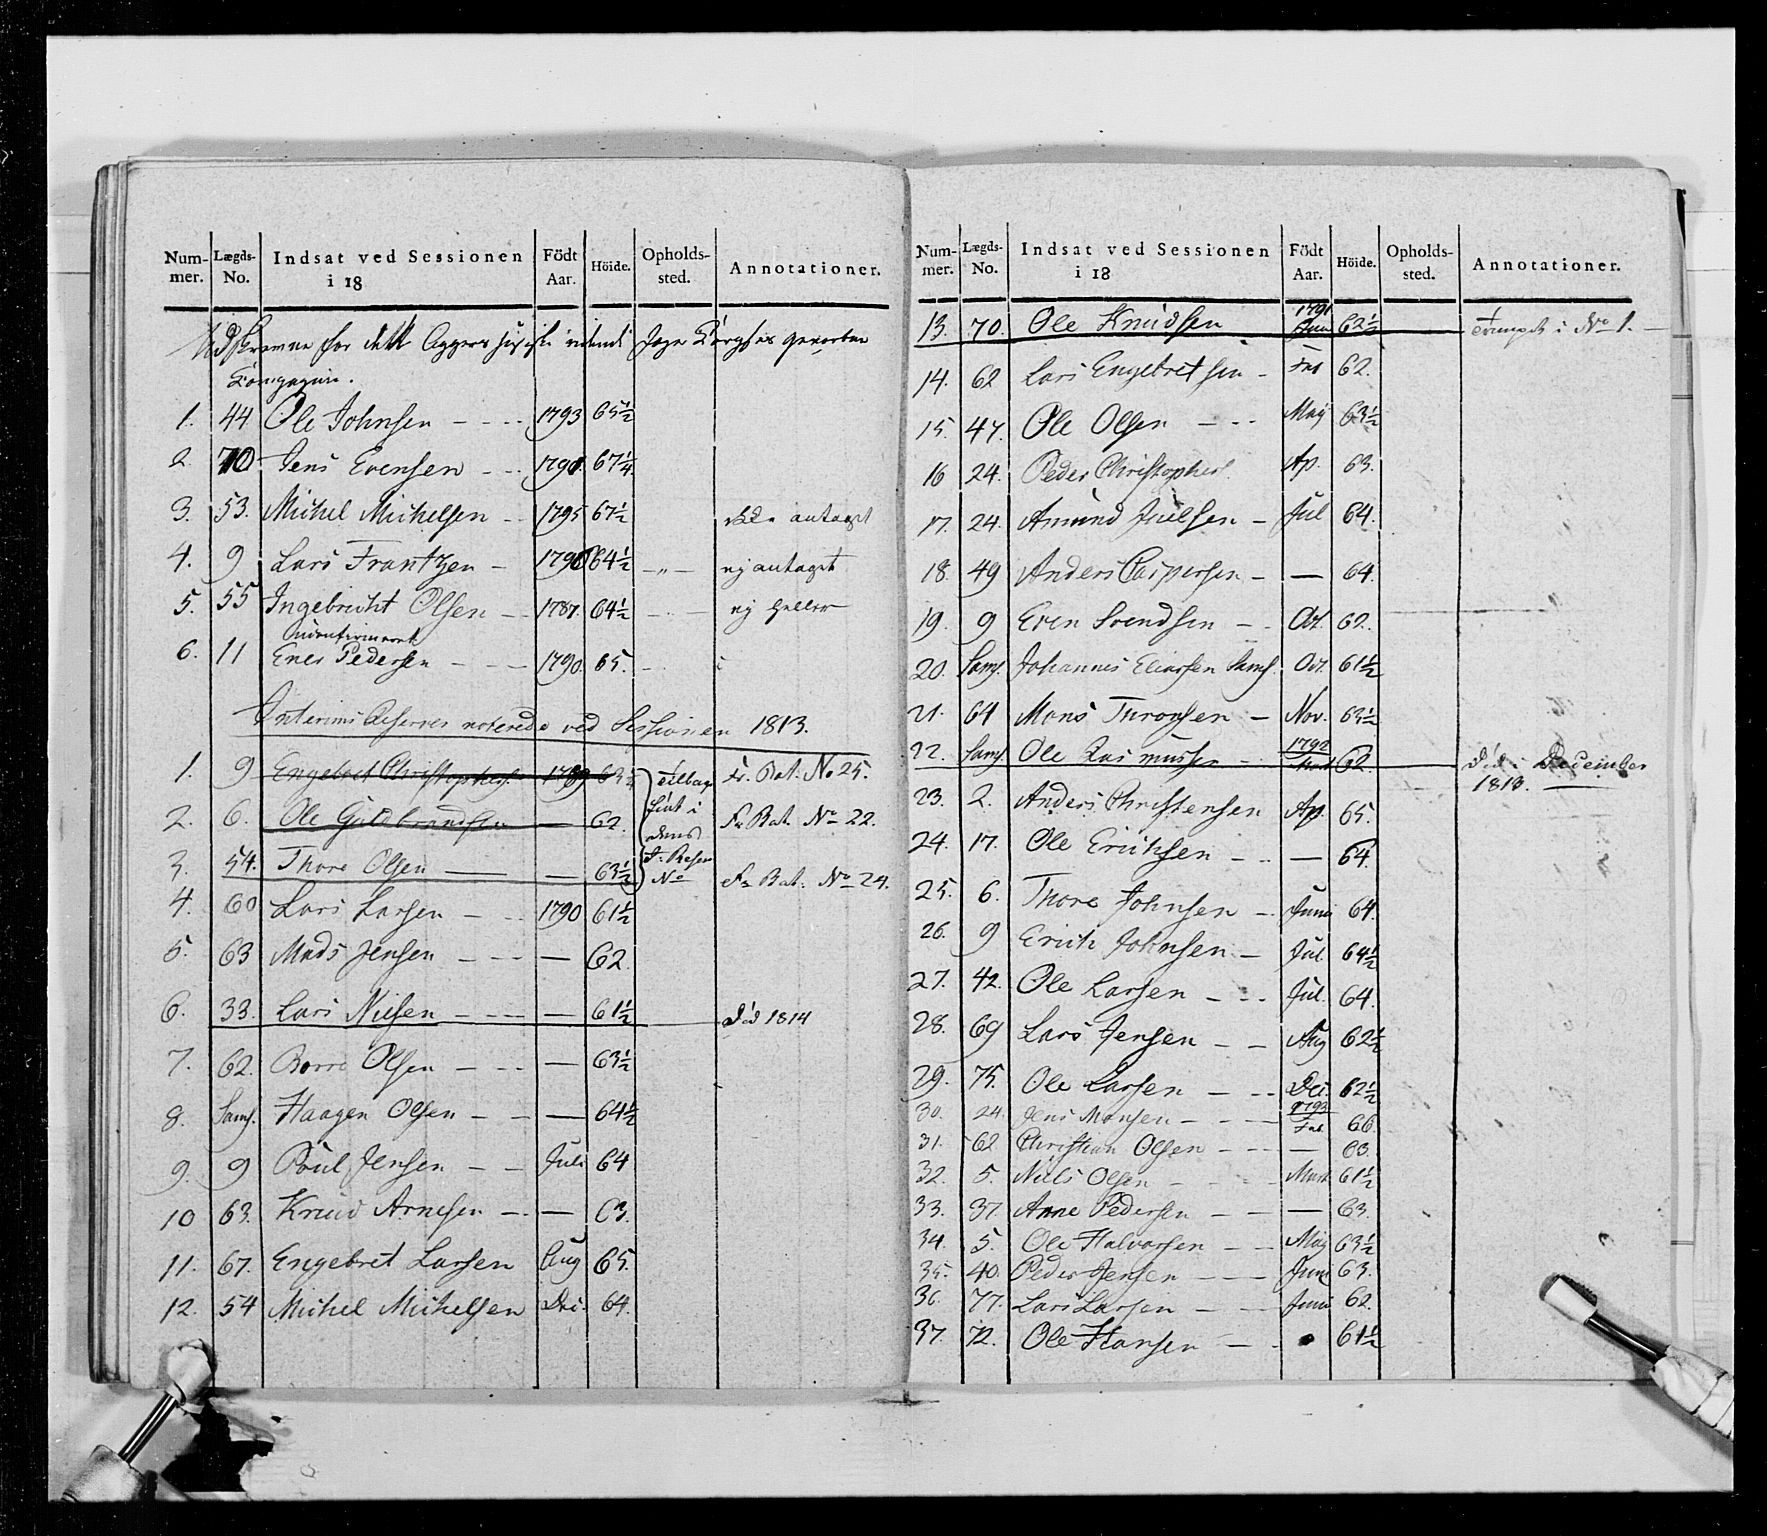 Num- Lægds- Indsat ved Sessionen Födt Höide. Opholds- Annotationer.
mer. No. i 18 Aar. sted.
Udskrevne for dett Aggers
Compagnie.
1. 44 Ole Johnsen - - - 1793 65½
2. 70 Jens Evensen - - - 1791. 67¼
3. 53. Michel Michelsen - - 1795 67½ antaget
4. 9 Lars Frantzen - 1790 64½ - „ - ej antaget
5. 55 Ingebricht Olsen - 1787. 64½ - ej heller
6. 11 Ener Pedersen - - - 1790. 65.
Interims Reserver noterede ved Sessionen 1813.
1. 9 Engebret Christophers. 1789 63½ tilbage Fr. Bat: No 25.
2. 6. Ole Guldbrandsen — 62. Fr. Bat. No 22.
3. 54. Thore Olsen — — 63½ Fr. Bat: No 24.
4. 60 Lars Larsen - - 1790 61½
5. 63 Mads Jensen - - - — 62.
6. 33. Lars Nilsen - - - — 61½ död 1814
7. 62. Borre Olsen - - — 63½
8. Sams. Haagen Olsen - - — 64½
9. 9 Poul Jensen - - Juli 64
10 63. Knud Arnesen - - — 63.
11. 67. Engebret Larsen Aug 65.
12. 54 Michel Michelsen Dec. 64.
Num- Lægds- Indsat ved Sessionen Födt Höide. Opholds- Annotationer.
mer. No. i 18 Aar. sted.
13. 70. Ole Knudsen 1791 Jan 62½ i No 1.
14. 62 Lars Engebretsen - Feb 62.
15. 47. Ole Olsen - - - May 63½
16 24. Peder Christophers. Ap. 63.
17. 24. Amund Juelsen - Jul 64.
18. 49 Anders Caspersen - — 64.
19. 9 Even Svendsen - - Oct. 62.
20. Sams. Johannes Eliassen Sams. Oct. 61½
21. 64 Mons Thronsen - Nov. 63½
22. Sams. Ole Rasmussen - 1792 62. Död i December
1813.
23. 2. Anders Christensen Ap. 65.
24. 17. Ole Erichsen - - — 64.
25. 6. Thore Johnsen - Juni 64.
26. 9 Erich Johnsen - Jul 64½
27. 42. Ole Larsen - - - Jul. 64.
28. 69 Lars Jensen - - Aug 62½
29. 75. Ole Larsen - - - Dec. 62½
30. 24. Jens Monsen - - - 1793 Feb. 66.
31. 62 Christian Olsen - - - — 63.
32. 5. Niels Olsen - - - Mart. 61½
33. 37. Arne Pedersen - - — 63.
34. 5. Ole Halvorsen - - May 63½
35. 40. Peder Jensen - - - Juni 63.
36. 77. Lars Larsen - - Juni 62.
37. 72. Ole Hansen - - 61½